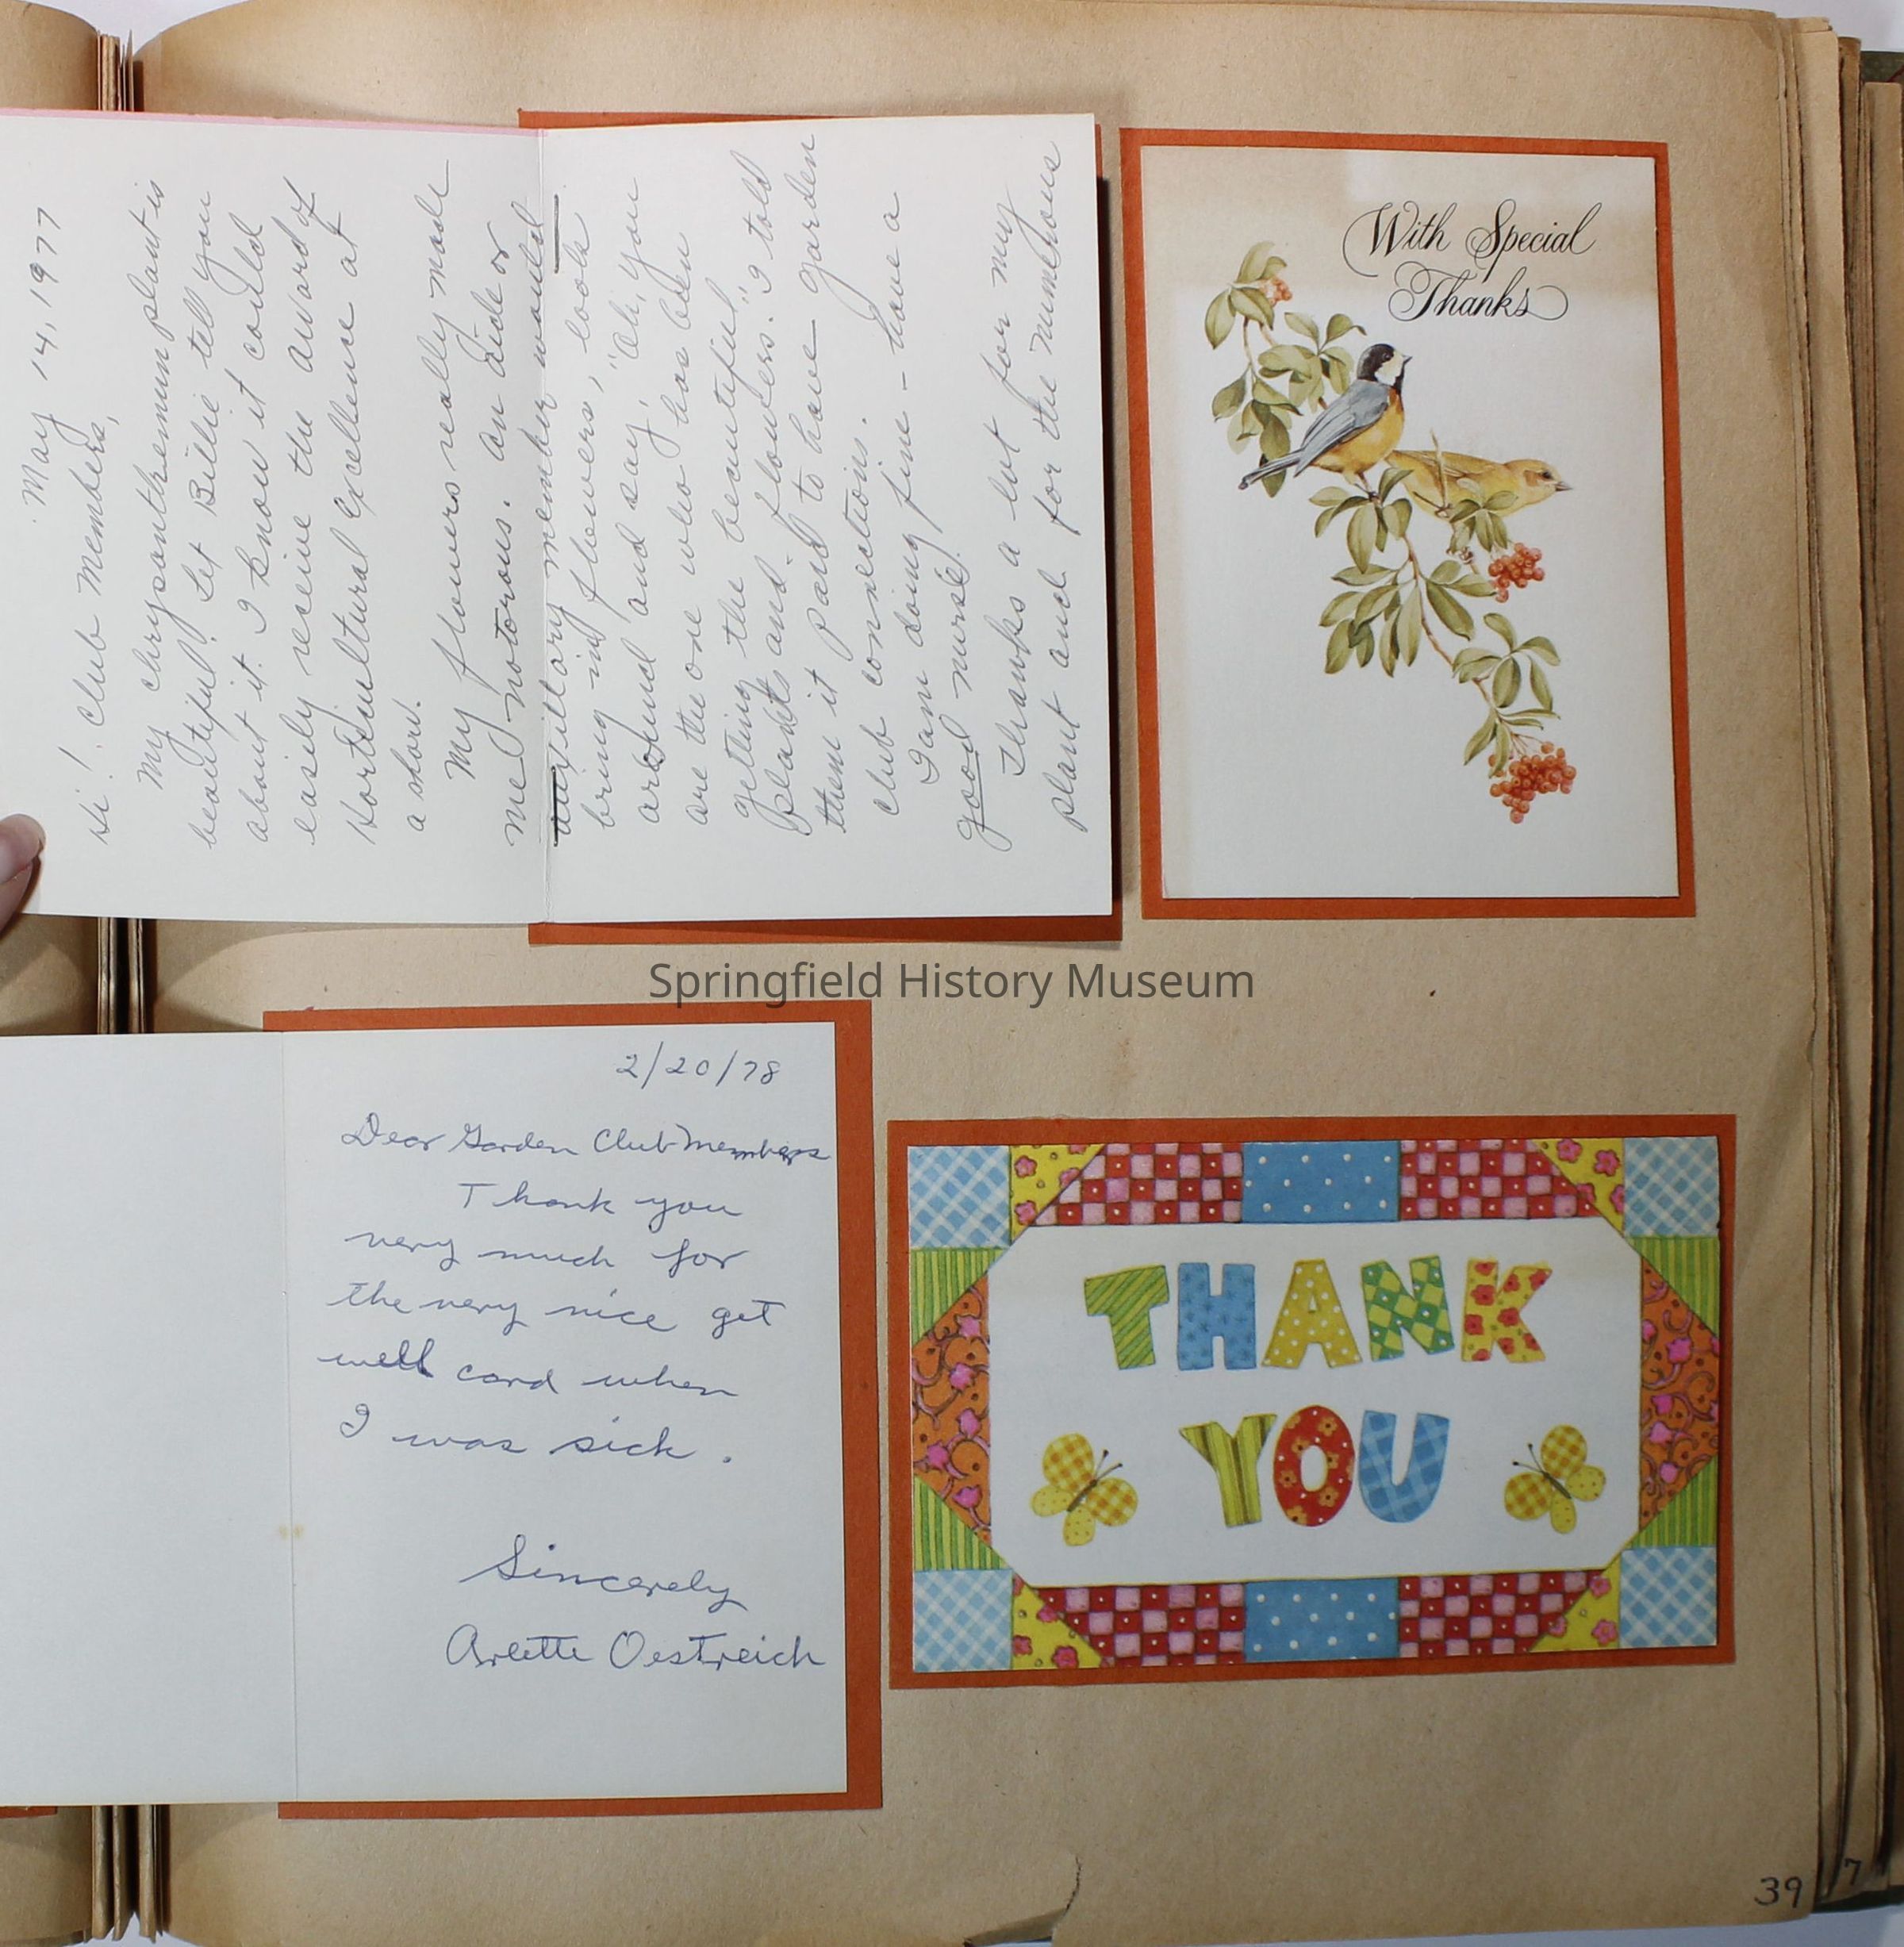 May 14, 1977
Hi! Club Members,
My chrysanthemum plant is
beautiful! Let Billie tell you
about it. I know it could
easily receive the award of
Horticultural Excellence at
a show.
My flowers really made
me notorous. An aide or
auxillary member would
bring in flowers, look
around and say, "Oh, you
are the one who has been
getting the beautiful
plants and flowers." I told
them it paid to have garden
club connections.
I am doing fine - have a
good nurse!
Thanks a lot for my
plant and for the numerous
With Special
Thanks
Springfield History Museum
2/20/78
Dear Garden Club Members
Thank you
very much for
the very nice get
well card when
I was sick.
Sincerely
Arlette Oestreich
THANK
YOU
39
7